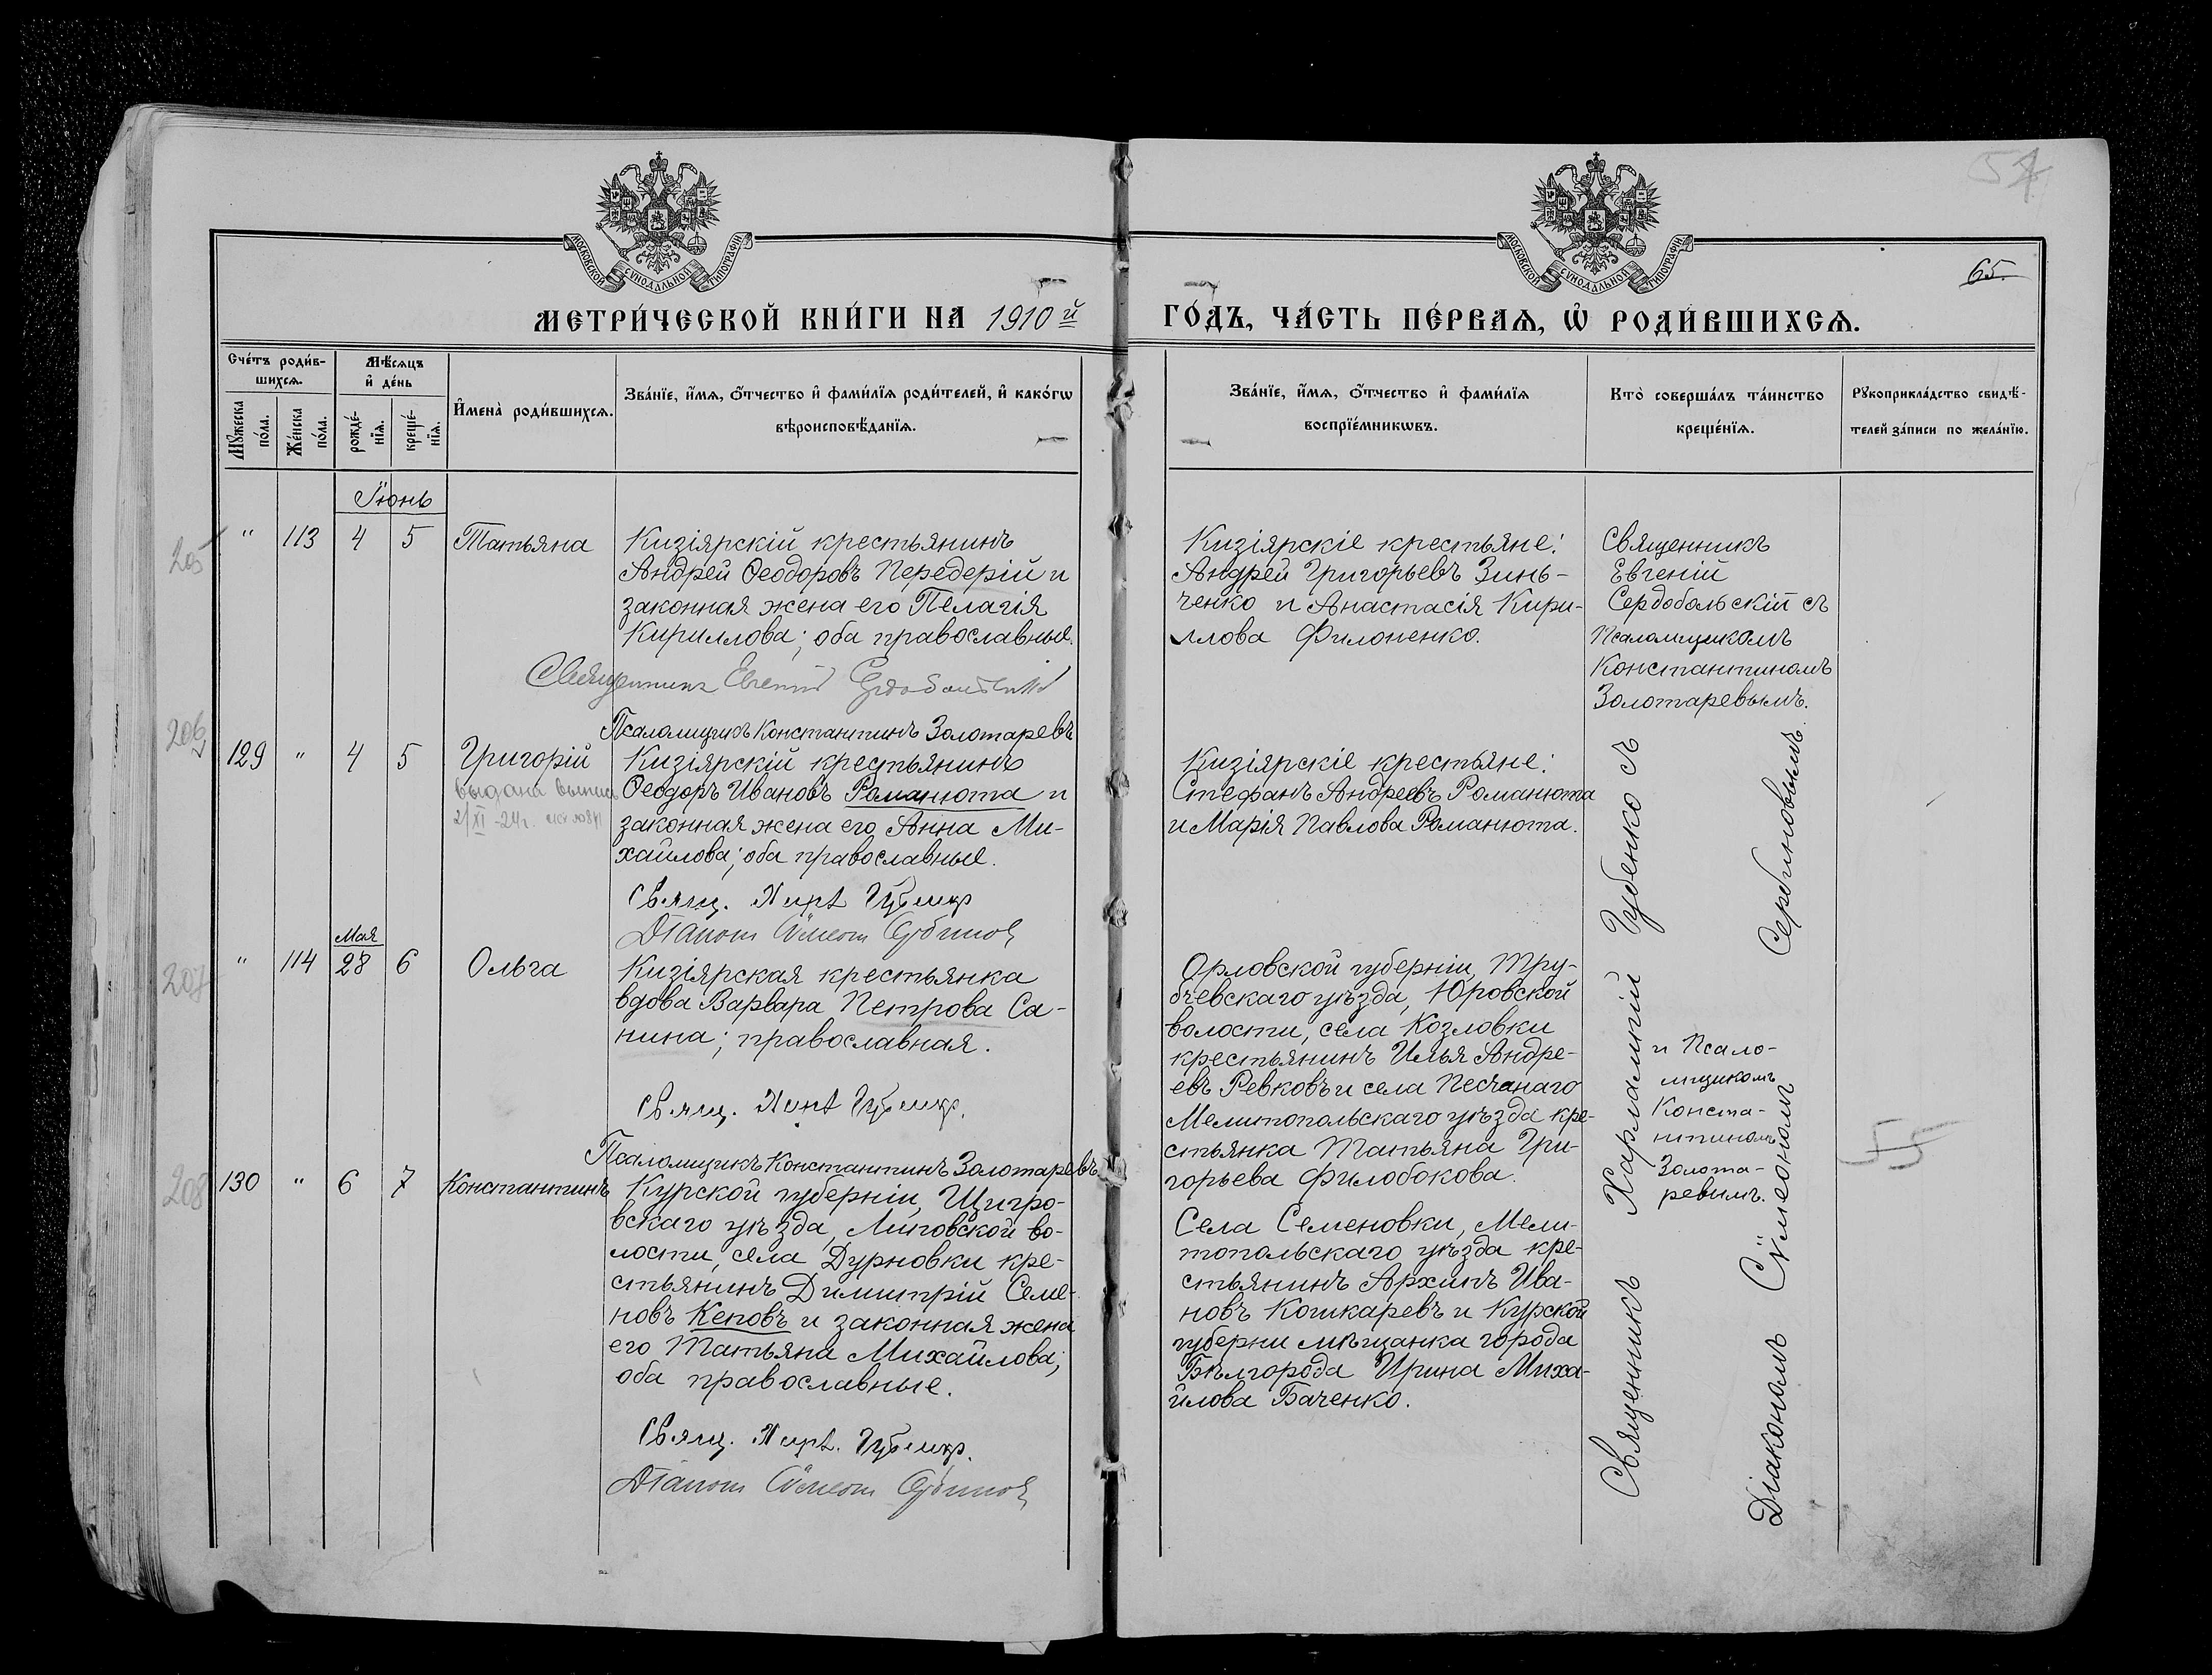 57
65.
МОСКОВСКОЙ СѴНОДАЛЬНОЙ ТИПОГРАФІИ
МОСКОВСКОЙ СѴНОДАЛЬНОЙ ТИПОГРАФІИ
МЕТРИ́ЧЕСКОЙ КНИ́ГИ НА 1910й
ГО́ДЪ, ЧА́СТЬ ПЕ́РВАѦ, Ѡ҆ РОДИ́ВШИХСѦ.
Сче́тъ роди́в-
шихсѧ.
Мꙋ́жеска по́ла.
Же́нска по́ла.
Мѣ́сѧцъ
и҆ де́нь
рожде́-
нїѧ.
креще́-
нїѧ.
И҆мена̀ роди́вшихсѧ.
Зва́нїе, и҆́мѧ, ѻ҆́тчество и҆ фами́лїѧ роди́телей, и҆ како́гѡ
вѣроисповѣ́данїѧ.
Зва́нїе, и҆́мѧ, ѻ҆́тчество и҆ фами́лїѧ
воспрїе́мникѡвъ.
Кто̀ соверша́лъ та́инство
креще́нїѧ.
Рꙋкоприкла́дство свидѣ́-
телей за́писи по жела́нїю.
Іюнь
205
" 113 4 5 Татьяна
Кизіярскій крестьянинъ
Андрей Ѳеодоровъ Передерій и
законная жена его Пелагія
Кириллова; оба православные.
Священникъ Евгеній Сердобольскій
Псаломщикъ Константинъ Золотаревъ
Кизіярскіе крестьяне:
Андрей Григорьевъ Зинь-
ченко и Анастасія Кири-
ллова Филоненко.
Священникъ
Евгеній
Сердобольскій съ
Псаломщикомъ
Константиномъ
Золотаревымъ.
206
129 " 4 5 Григорій
выдана выпись
2/XI-24г.
Кизіярскій крестьянинъ
Ѳеодоръ Ивановъ Романюта и
законная жена его Анна Ми-
хайлова; оба православные.
Свящ. Харл. Губенко
Діаконъ Сѷмеонъ Сербиновъ
Кизіярскіе крестьяне:
Стефанъ Андреевъ Романюта
и Марія Павлова Романюта.
Священникъ Харлампій Губенко съ
Діакономъ Сѷмеономъ Сербиновымъ.
207
Мая
" 114 28 6 Ольга
Кизіярская крестьянка
вдова Варвара Петрова Са-
нина; православная.
Свящ. Харл. Губенко.
Псаломщикъ Константинъ Золотаревъ
Орловской губерніи, Тру-
бчевскаго уѣзда, Юровской
волости, села Козловки
крестьянинъ Илья Андре-
евъ Ревковъ и села Песчанаго
Мелитопольскаго уѣзда кре-
стьянка Татьяна Гри-
горьева Филобокова.
и Псало-
мщикомъ
Конста-
нтиномъ
Золота-
ревымъ.
55
208
130 " 6 7 Константинъ
Курской губерніи, Щигро-
вскаго уѣзда, Липовской во-
лости, села Дурновки кре-
стьянинъ Димитрій Семе-
новъ Кеповъ и законная жена
его Татьяна Михайлова;
оба православные.
Свящ. Харл. Губенко.
Діаконъ Сѷмеонъ Сербиновъ
Села Семеновки, Мели-
топольскаго уѣзда кре-
стьянинъ Архипъ Ива-
новъ Кошкаревъ и Курской
губерни мѣщанка города
Бѣлгорода Ирина Миха-
йлова Баченко.